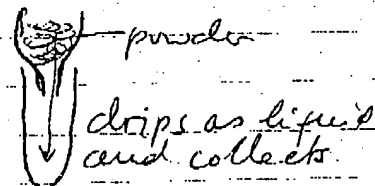 powder
drips as liquid
and collects